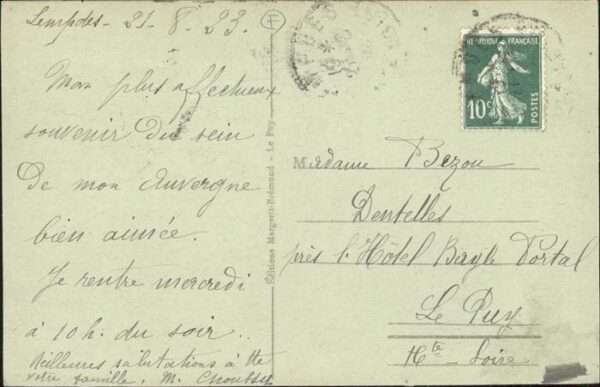 Lempdes - 21-8-23.
Mon plus affectueux
souvenir du sein
De mon Auvergne
bien aimée.
Je rentre mercredi
à 10 h. du soir.
Meilleures salutations à tte
votre famille. M.
Éditions Margerit-Brémond - Le Puy
F
REPUBLIQUE FRANÇAISE
10c
POSTES
Madame Bezou
Dentelles
près l'Hôtel Bayle Portal
Le Puy
Hte - Loire